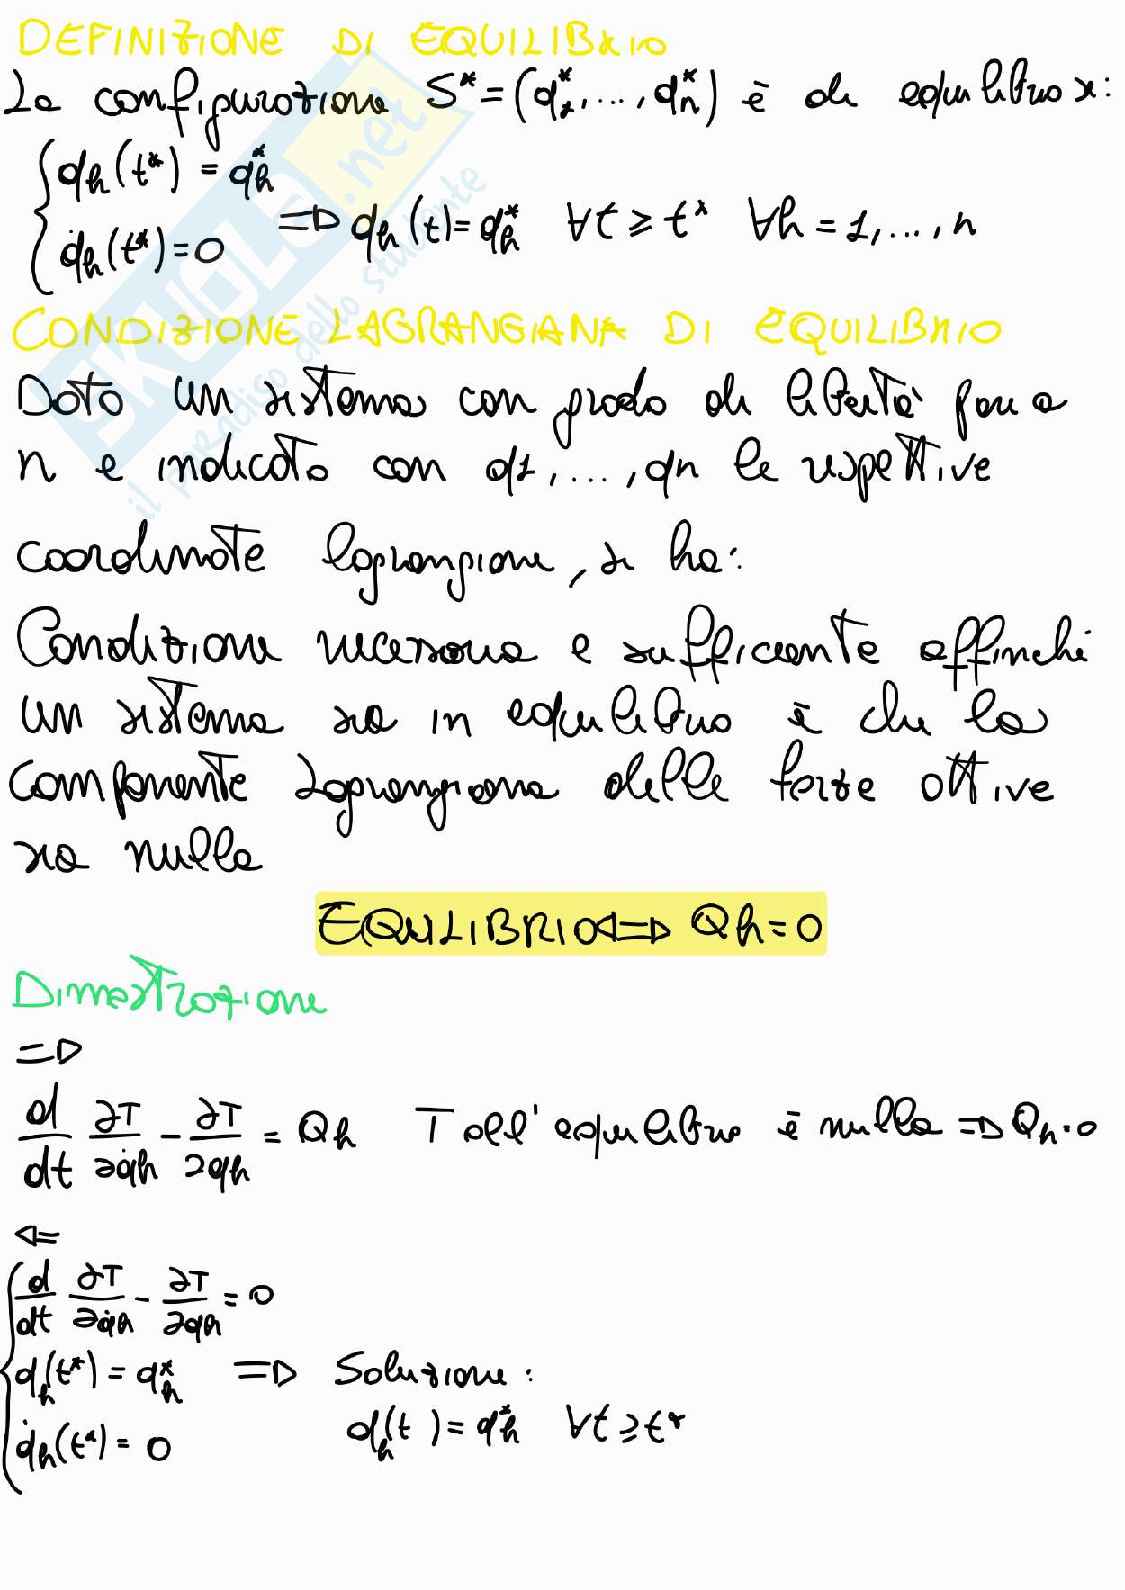 DEFINIZIONE DI EQUILIBRIO
La configurazione S* = (q₁*, ..., qₙ*) è di equilibrio se:
{ qh(t*) = qh*
q̇h(t*) = 0
⇒ qh(t) = qh* ∀t ≥ t* ∀h = 1, ..., n
CONDIZIONE LAGRANGIANA DI EQUILIBRIO
Dato un sistema con grado di libertà pari a
n e indicato con q1, ..., qn le rispettive
coordinate lagrangiane, si ha:
Condizione necessaria e sufficiente affinché
un sistema sia in equilibrio è che la
componente Lagrangiana delle forze attive
sia nulla
EQUILIBRIO ⇔ Qh = 0
Dimostrazione
⇒
d/dt ∂T/∂q̇h - ∂T/∂qh = Qh T all'equilibrio è nulla ⇒ Qh = 0
⇐
{ d/dt ∂T/∂q̇h - ∂T/∂qh = 0
qh(t*) = qh* ⇒ Soluzione:
q̇h(t*) = 0 qh(t) = qh* ∀t ≥ t*
SKUOLA.net
il paradiso dello studente